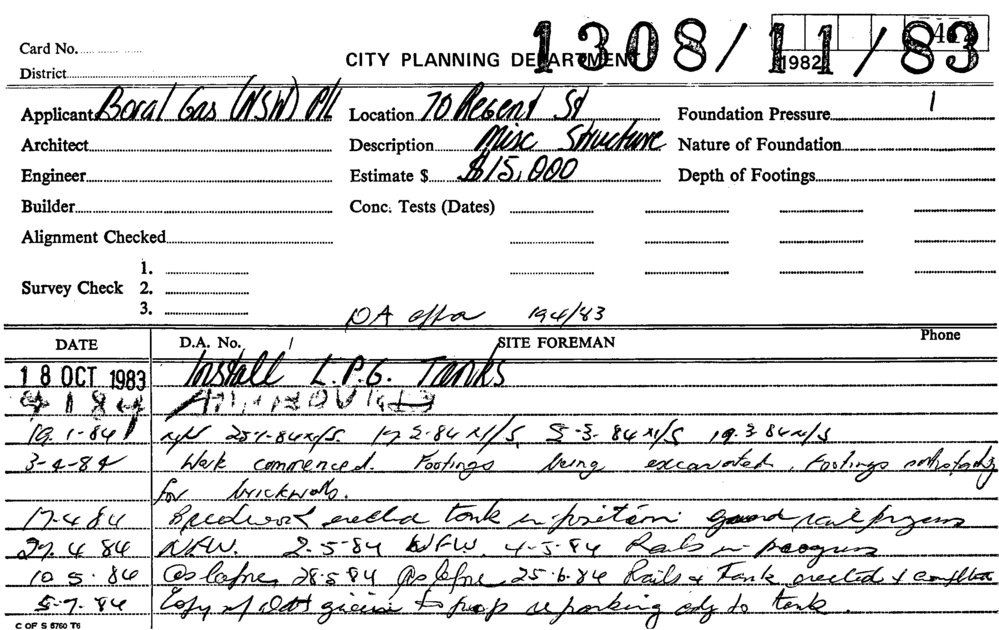 1308/11/83
Card No.
CITY PLANNING DEPARTMENT 1982
District
Applicant Boral Gas (NSW) P/L Location 70 Regent St Foundation Pressure
Architect Description Misc Structure Nature of Foundation
Engineer Estimate $ $15,000 Depth of Footings
Builder Conc. Tests (Dates)
Alignment Checked
1.
Survey Check 2.
3.
DA 194/83
DATE D.A. No. / SITE FOREMAN Phone
18 OCT 1983 Install L.P.G. Tanks
4 1 84 APPROVED
19.1-84 N/S 25-1-84 N/S. 17-2-84 N/S 5-3-84 N/S 19.3.84 N/S
3-4-84 Work commenced. Footings being excavated. Footings
for brickwalls.
17-4 84 erected tank in position guard rail
27.4 84 NFW. 2-5-84 NFW. 4-5-84 Rails in progress
10 5. 84 As before 28-5-84 As before 25-6-84 Rails & Tank erected &
5-7-84 Copy of to parking adj to tank.
C OF S 6760 T6